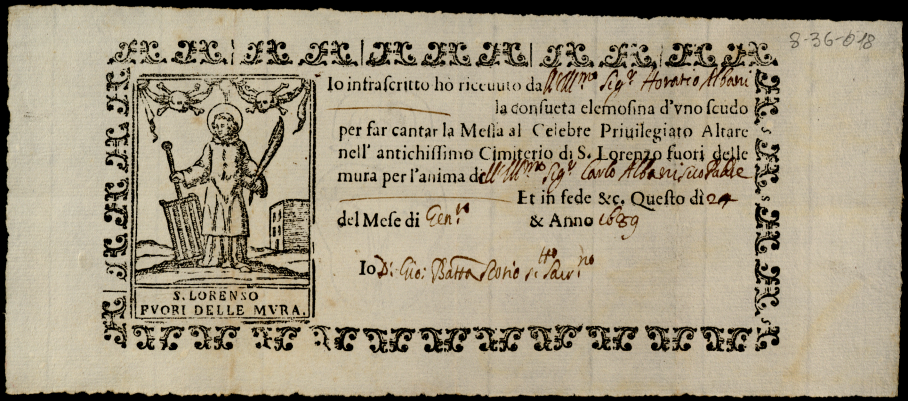 8-36-018
Io infrascritto hò riceuuto dall Ill.mo Sig.r Horatio Albani
la consueta elemosina d'vno scudo
per far cantar la Messa al Celebre Priuilegiato Altare
nell' antichissimo Cimiterio di S. Lorenzo fuori delle
mura per l'anima dell Ill.mo Sig.r Carlo Albani suo Padre
Et in fede &c. Questo dì 24
del Mese di Gen.ro & Anno 1689
Io D. Gio: Batta
S. LORENSO
FVORI DELLE MVRA.